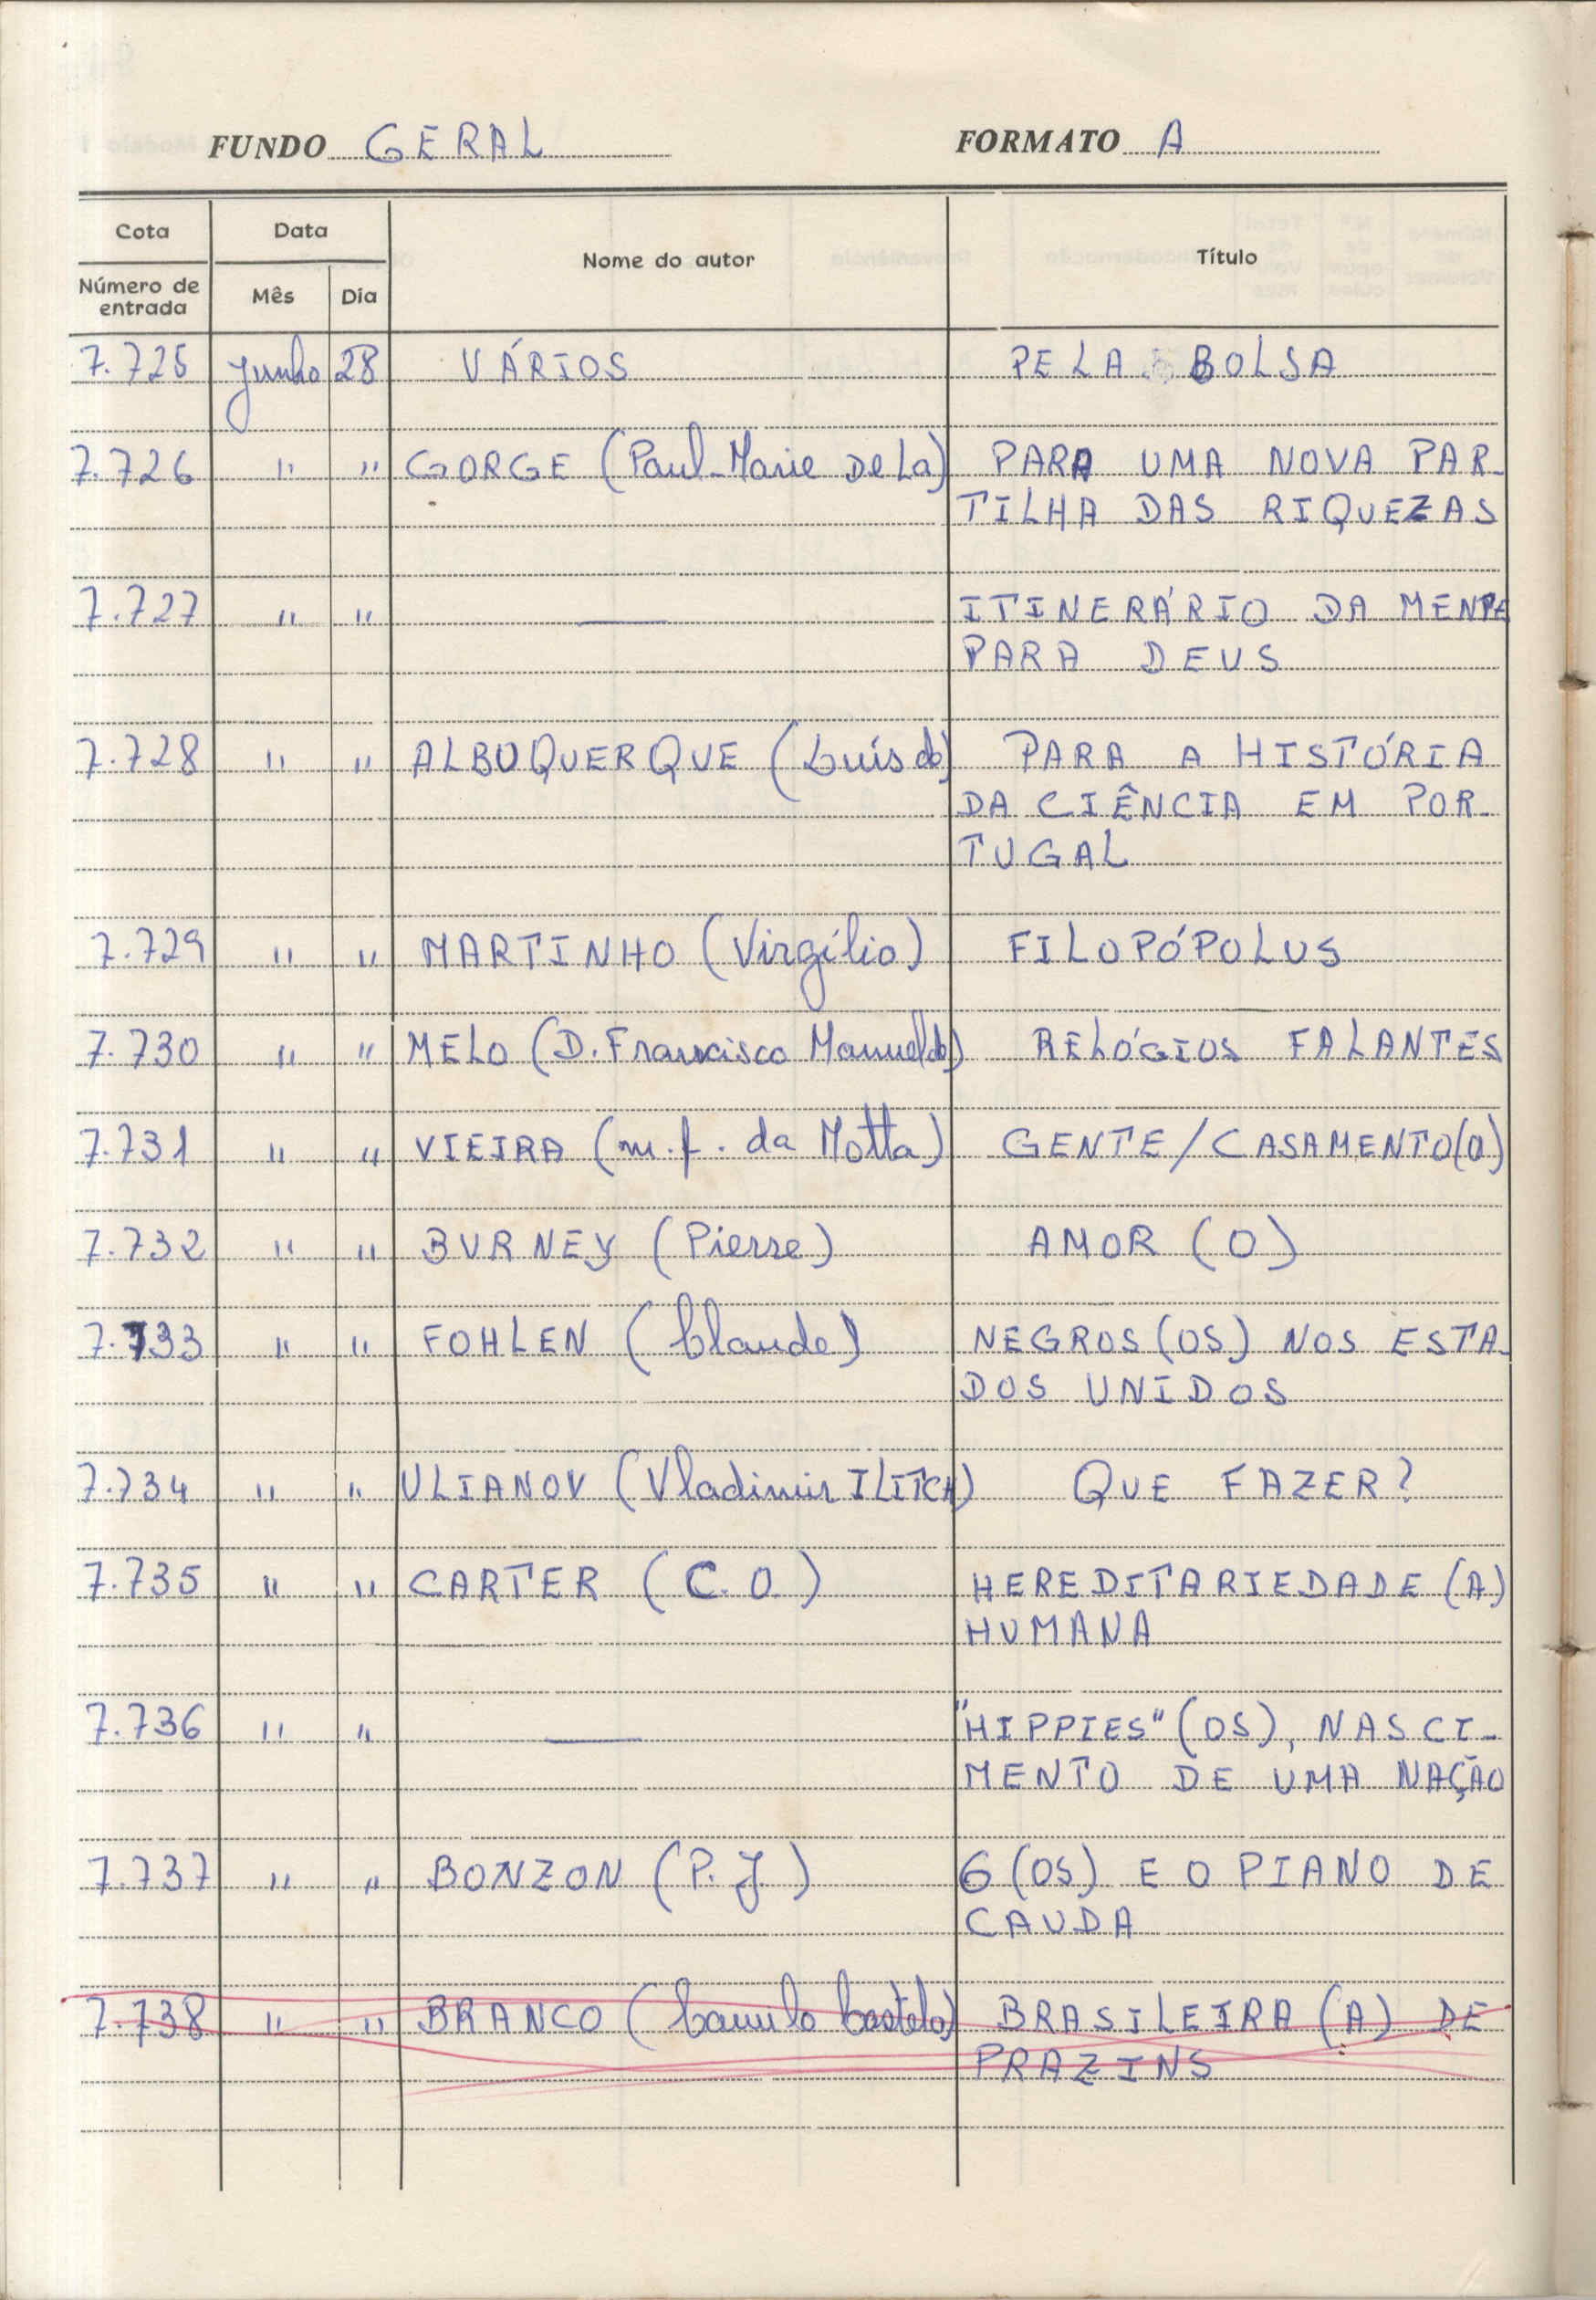 FUNDO GERAL FORMATO A
Cota Data Nome do autor Título
Número de entrada Mês Dia
7.725 Junho 28 VÁRIOS PELA BOLSA
7.726 " " GORGE (Paul-Marie De La) PARA UMA NOVA PAR-
TILHA DAS RIQUEZAS
7.727 " " — ITINERÁRIO DA MENTE
PARA DEUS
7.728 " " ALBUQUERQUE (Luís de) PARA A HISTÓRIA
DA CIÊNCIA EM POR-
TUGAL
7.729 " " MARTINHO (Virgílio) FILOPÓPOLUS
7.730 " " MELO (D. Francisco Manuel de) RELÓGIOS FALANTES
7.731 " " VIEIRA (m. f. da Motta) GENTE/CASAMENTO(O)
7.732 " " BURNEY (Pierre) AMOR (O)
7.733 " " FOHLEN (Claude) NEGROS (OS) NOS ESTA-
DOS UNIDOS
7.734 " " ULIANOV (Vladimir ILITCH) QUE FAZER?
7.735 " " CARTER (C. O.) HEREDITARIEDADE (A)
HUMANA
7.736 " " — "HIPPIES" (OS), NASCI-
MENTO DE UMA NAÇÃO
7.737 " " BONZON (P. J) 6 (OS) E O PIANO DE
CAUDA
7.738 " " BRANCO (Camilo Castelo) BRASILEIRA (A) DE
PRAZINS